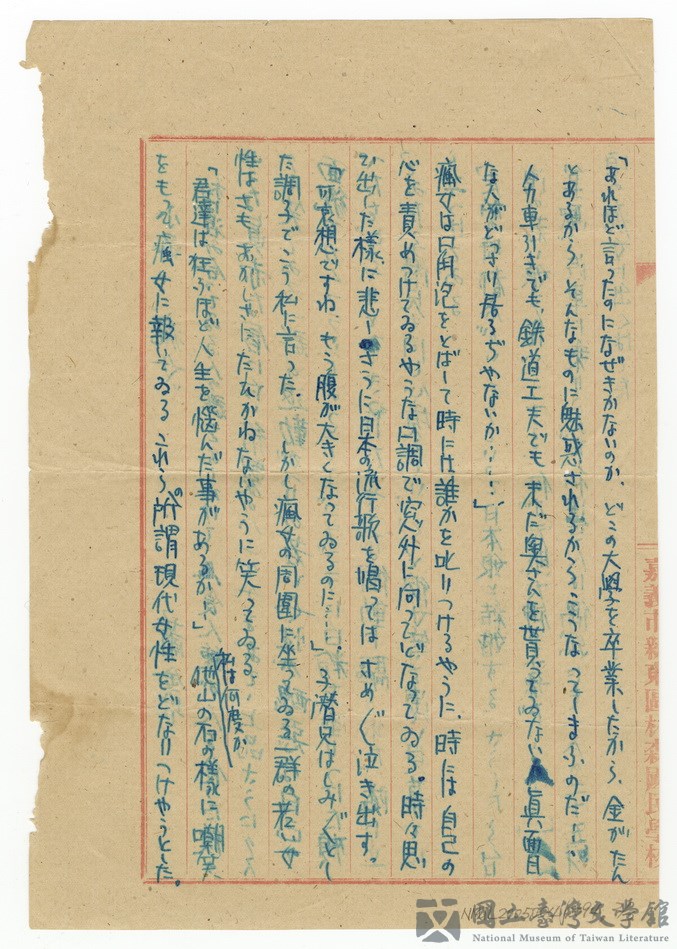 「あれほど言ったのになぜきかないのか、どこの大學を卒業したから、金がたん
とあるから、そんなものに魅惑されるからこうなってしまふのだ……
人力車引きでも、鉄道工夫でも未だ奥さんを貰ってゐない眞面目
な人がどっさり居るぢやないか……」
瘋女は口角泡をとばして時には誰かを叱りつけるやうに、時には自己の
心を責めつけてゐるやうな口調で窓外に向ってどなってゐる。時々思
ひ出した様に悲しさうに日本の流行歌を唱ってはさめざめ泣き出す。
「可哀想ですね、もう腹が大きくなってゐるのに……」子潛兄はしみじみとし
た調子でこう私に言った。しかし瘋女の周圍に坐ってゐる一群の若い女
性はさもおかしさにたへかねないやうに笑ってゐる。
「君達は狂ふほど人生を惱んだ事があるか!」他山の石の樣に嘲笑
私は何度か
をもって瘋女に報いてゐるこれらの所謂現代女性をどなりつけやうとした。
嘉義市新東區林森國民學校
國立臺灣文學館
National Museum of Taiwan Literature